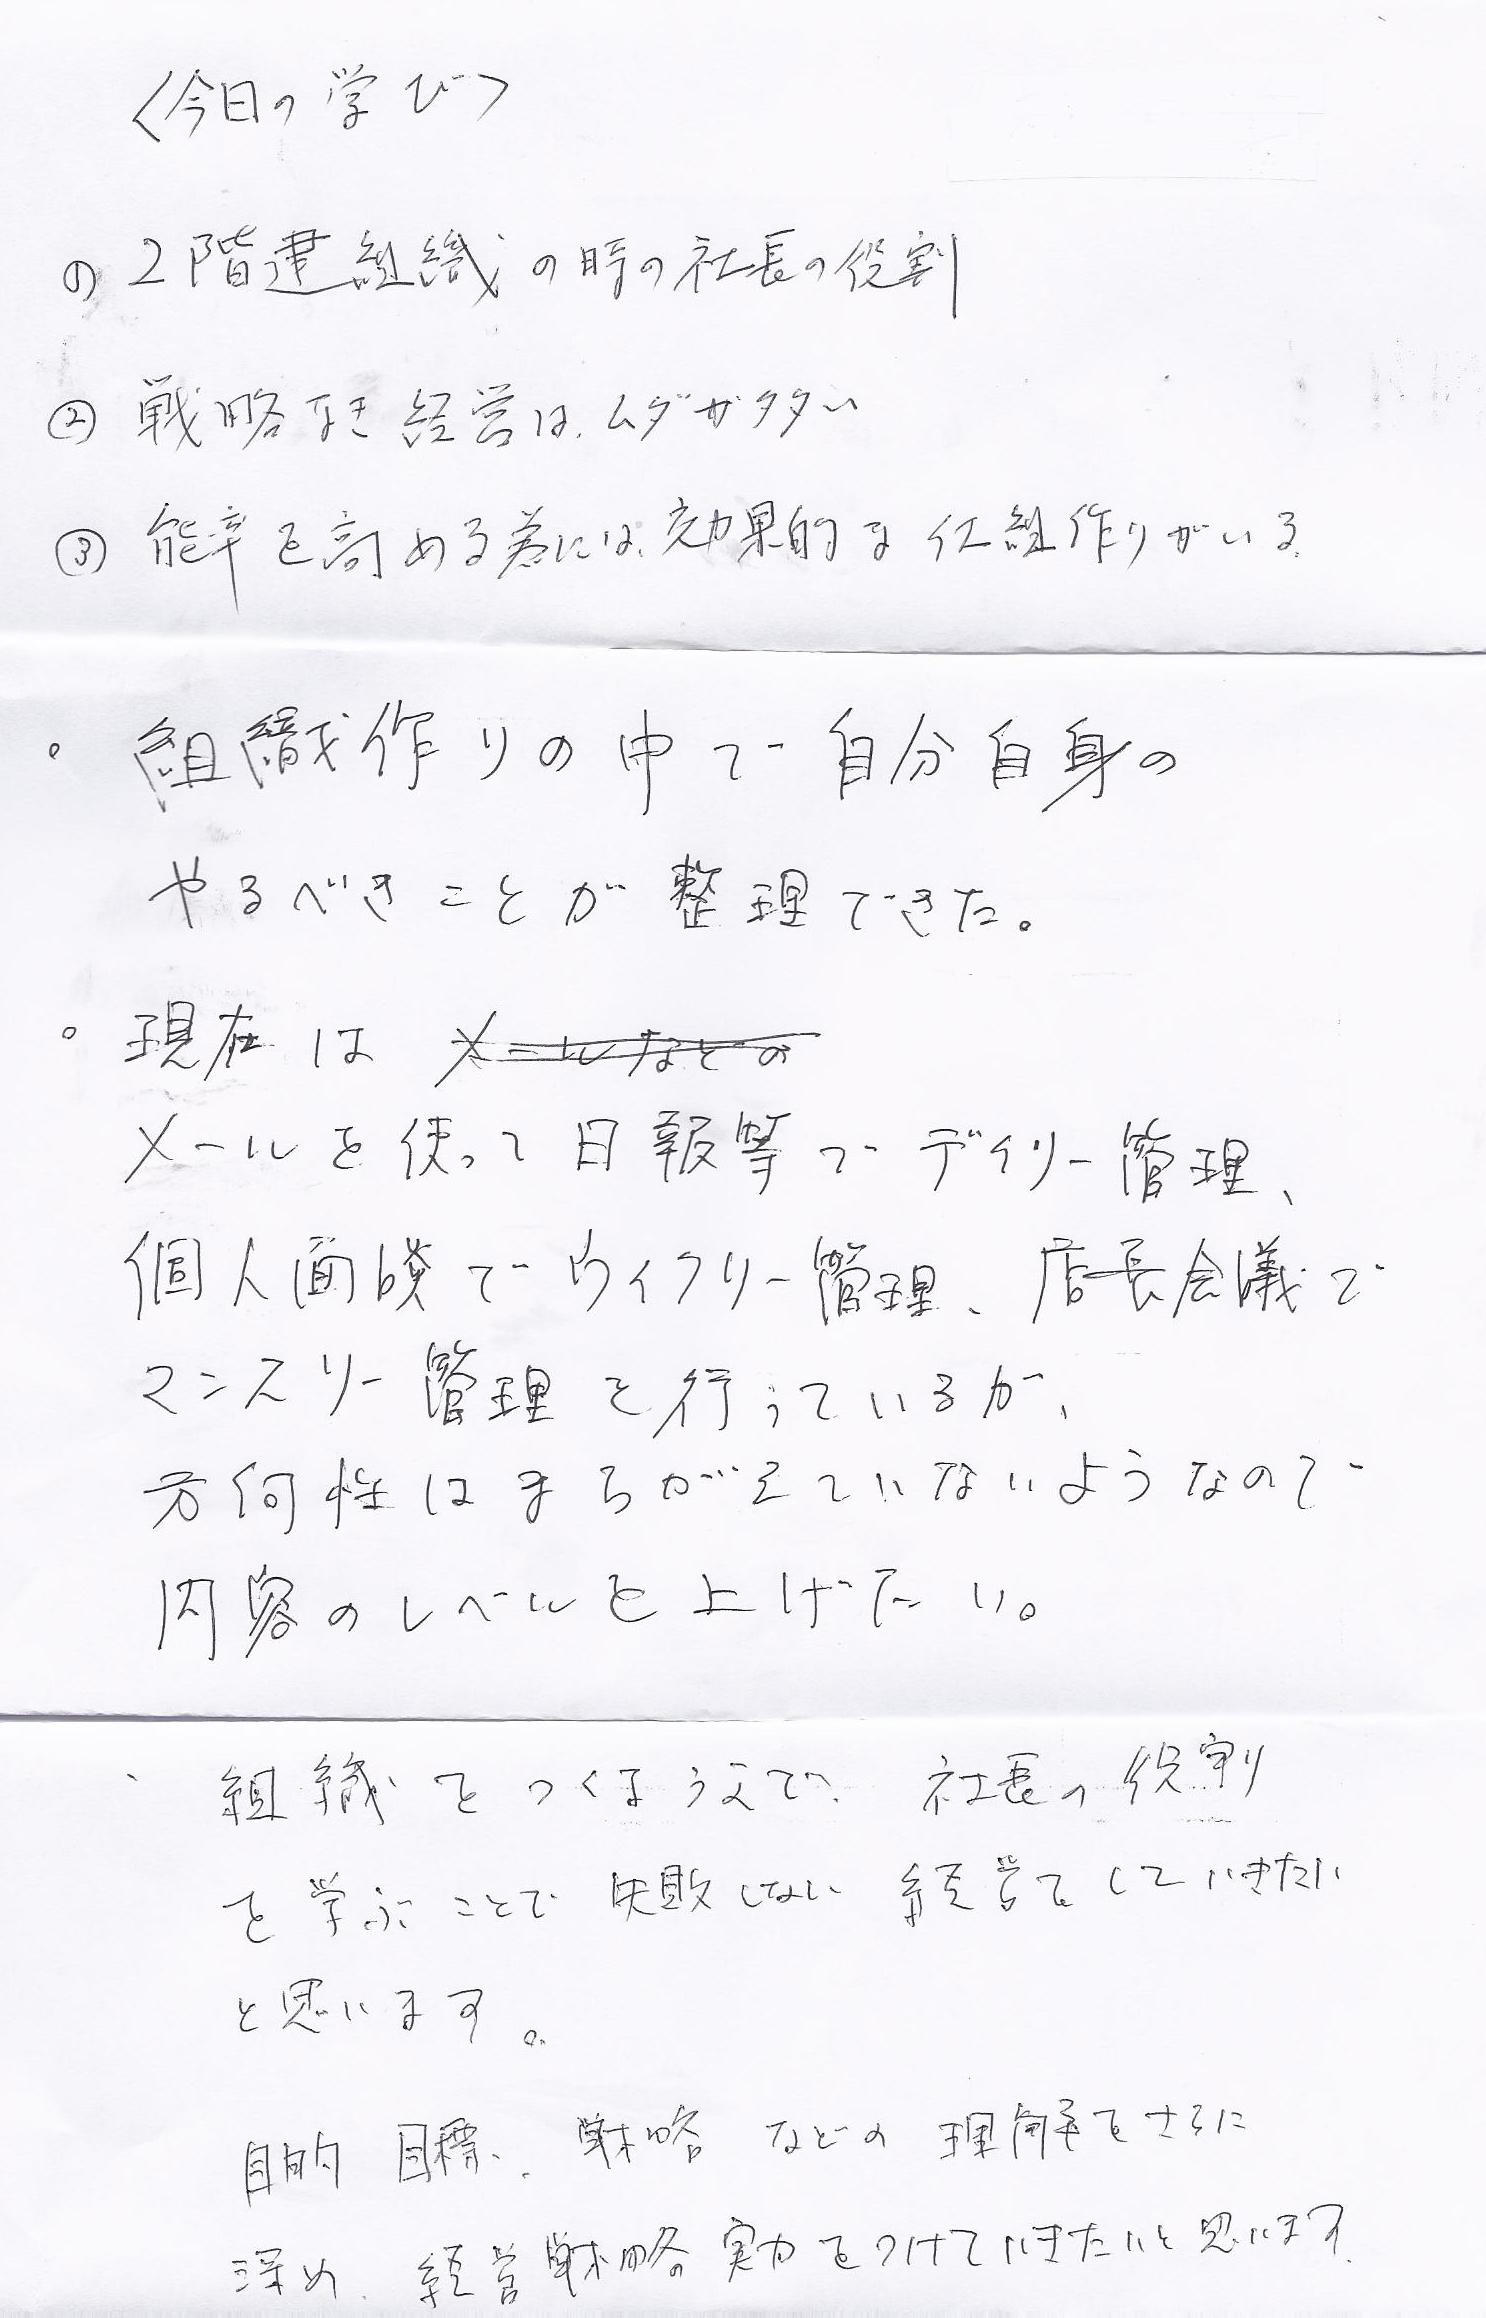 〈今日の学び〉
① 2階建組織の時の社長の役割
② 戦略なき経営は、ムダガタタい
③ 能率を高める為には、効果的な仕組作りがいる
。組織作りの中で自分自身の
やるべきことが整理できた。
。現在は メールなどの
メールを使って日報等でデイリー管理、
個人面談でウィクリー管理、店長会議で
マンスリー管理を行っているが、
方向性はまちがえていないようなので
内容のレベルを上げたい。
・ 組織をつくるうえで、社長の役割
を学ぶことで失敗しない経営をしていきたい
と思います。
目的 目標、戦略 などの理解をさらに
深め、経営戦略の実力をつけていきたいと思います